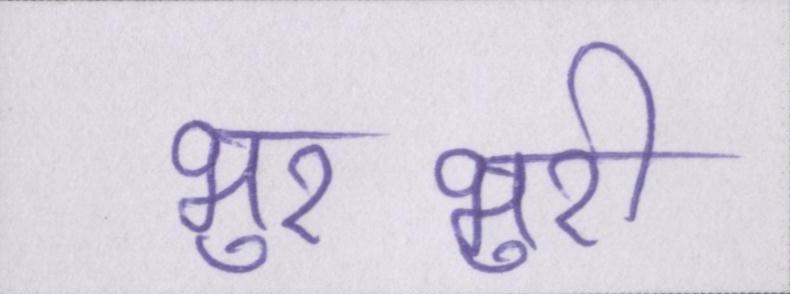 भुर भुरी